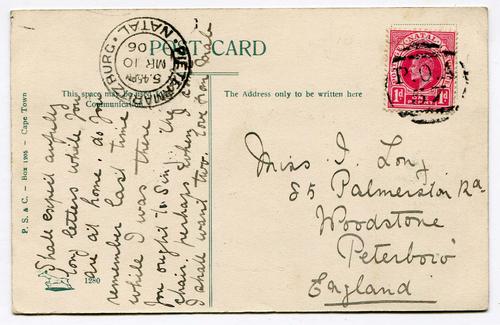 POST CARD
PIETERMARITZBURG · NATAL
5.45 PM
MR 10
06
This space may be
Communication
The Address only to be written here
NATAL
1d 1d
P. O.
I shall expect awfully
long letters while you
are at home, as you
remember last time
while I was there
you ought to sing "My
chair perhaps when I
I shall want two. Love from
Miss I. Long
85 Palmerston Rd.
Woodstone
Peterboro'
England
P. S. & C. - Box 1305 - Cape Town
1280